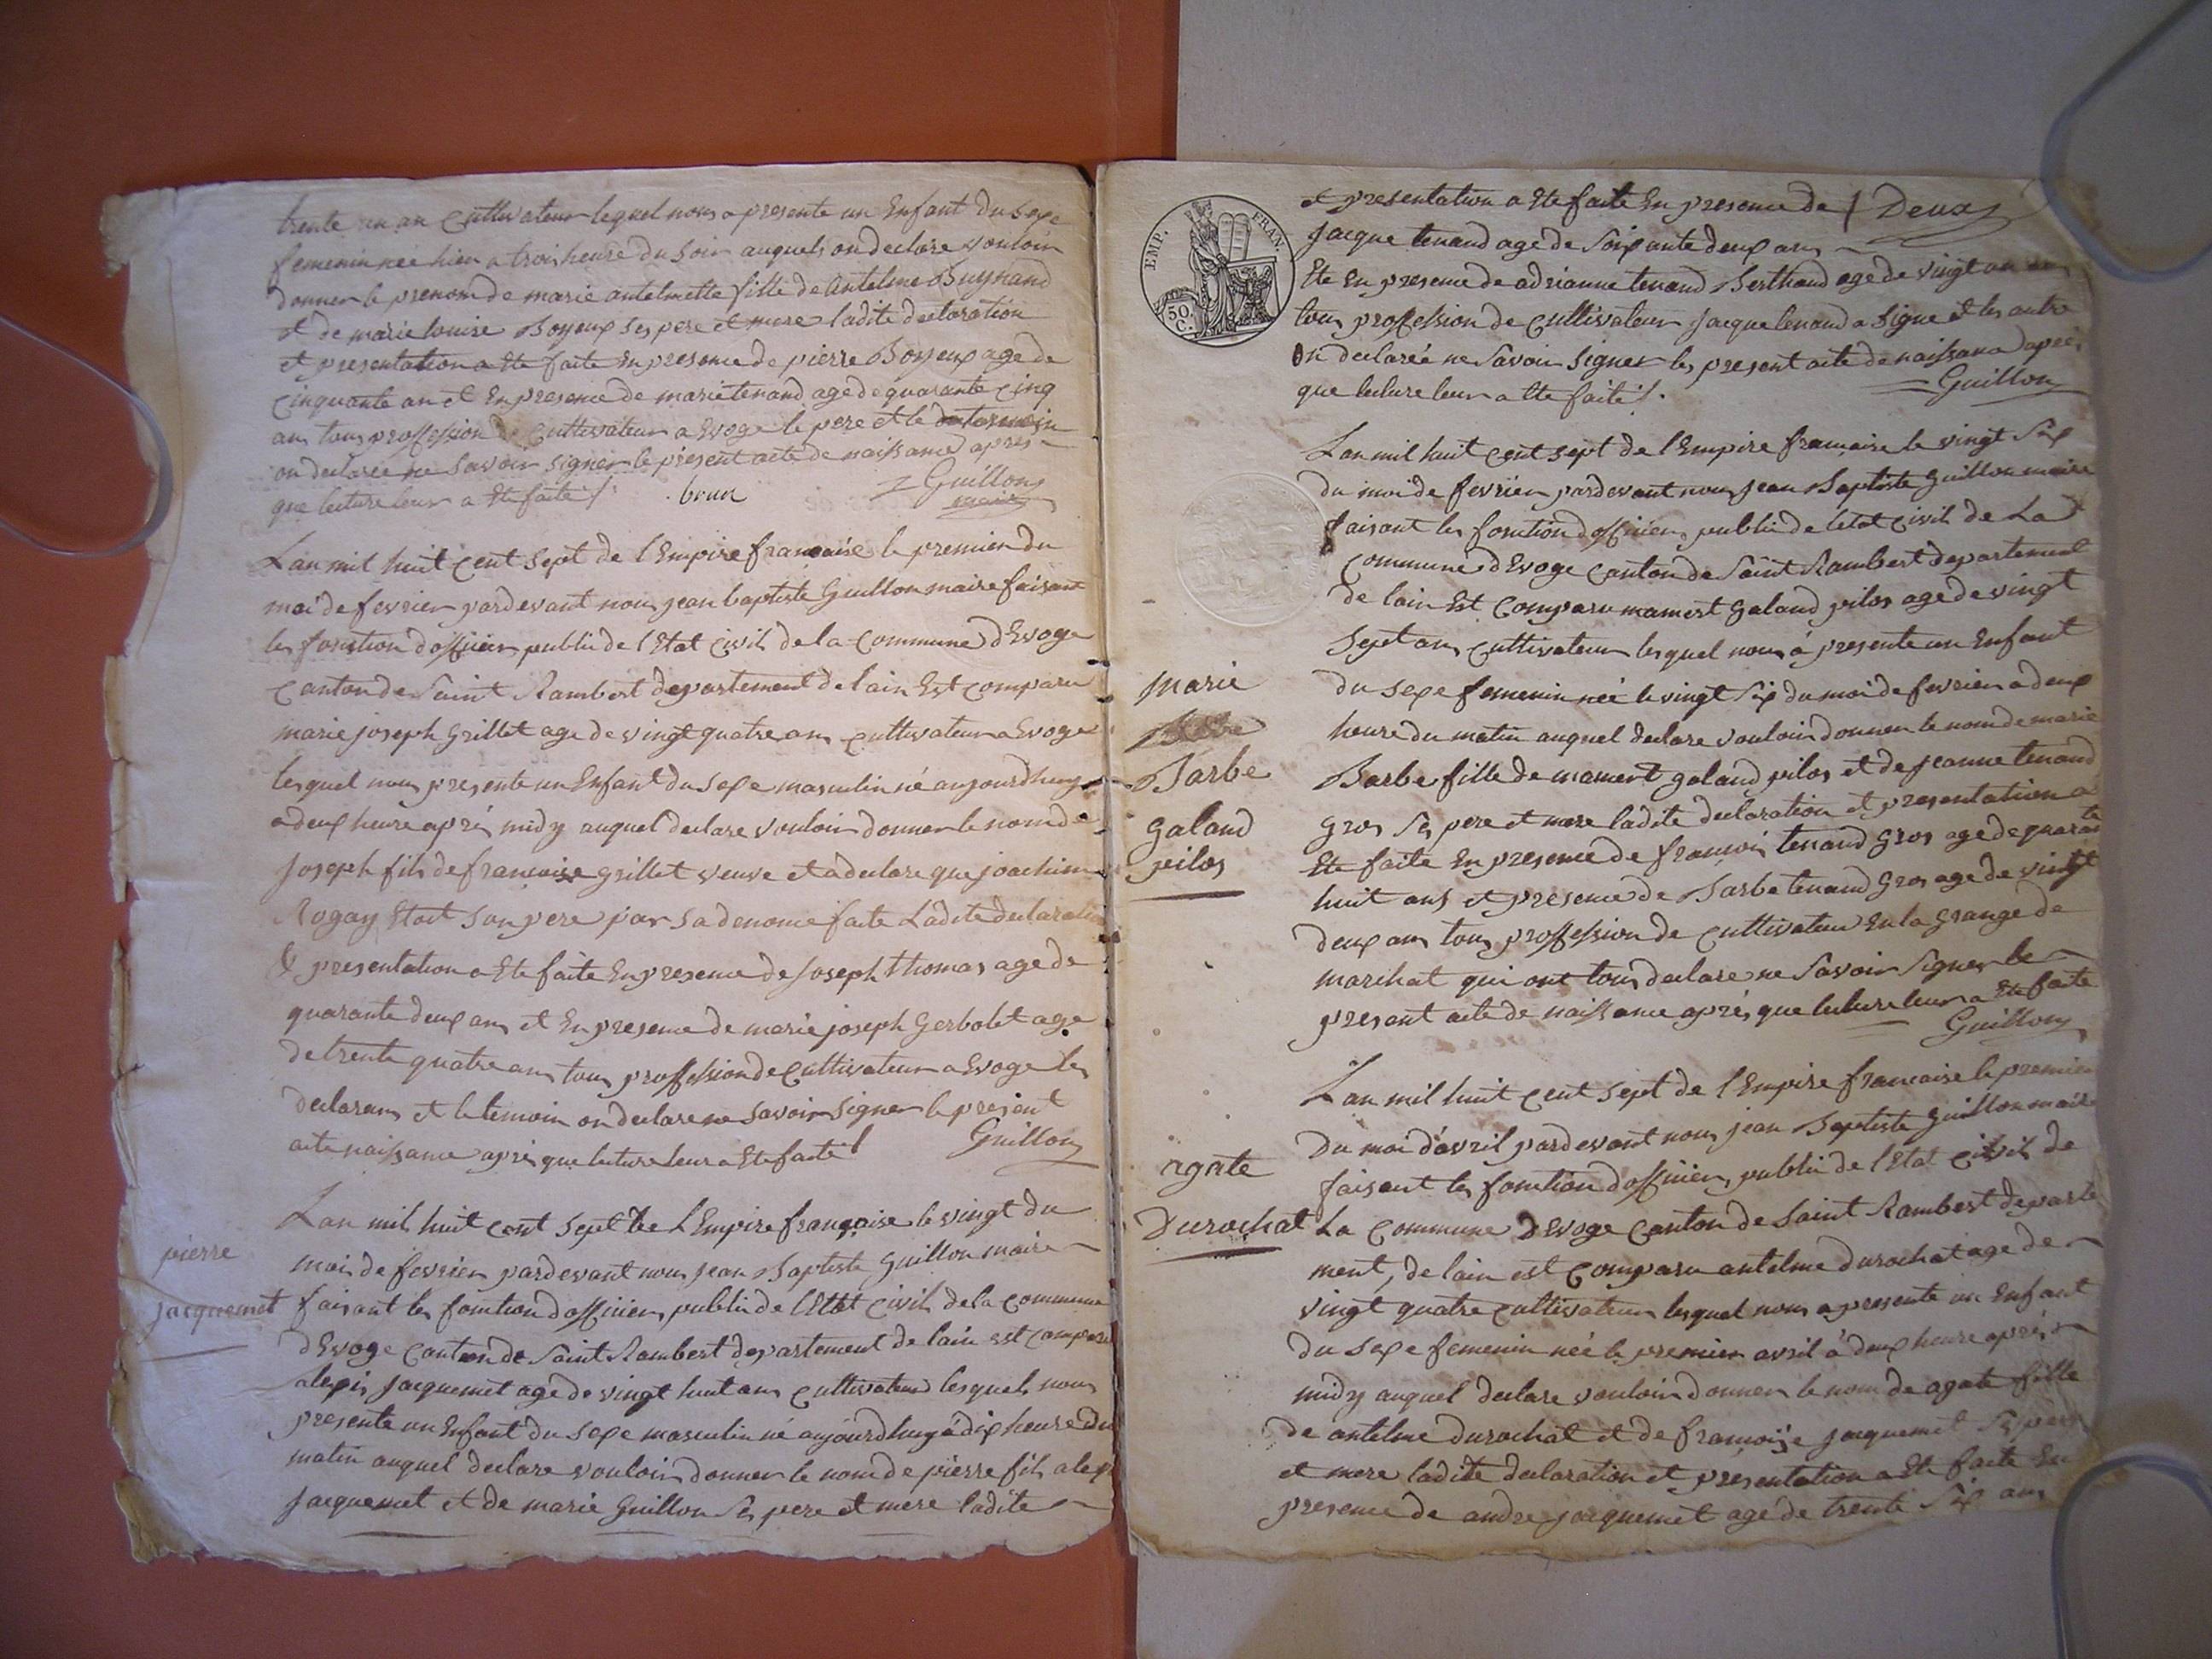 trente un an Cultivateur lequel nous a presente un Enfant du Sexe
femenin née hier a trois heure du Soir auquels on declare vouloir
donner le prenom de marie antelmette fille de Antelme Buynand
et de marie louise Boyeux ses pere et mere ladite declaration
et presentation a Ete faite En presence de pierre Boyeux age de
Cinquante an et En presence de marie tenand age de quarante Cinq
ans tous proffession de Cultivateur a Evoge le pere et le
on declarée ne Savoir Signer le présent acte de naissance après
que lecture leur a Ete faite /. brun Guillon
maire
L'an mil huit Cent Sept de l'Empire francaise le premier du
moi de fevrier pardevant nous jean baptiste Guillon maire faisant
les fonction d'officier public de l'Etat Civil de la Commune d'Evoge
Canton de Saint Rambert departement de lain Est Comparu
marie joseph Grillet age de vingt quatre ans Cultivateur a Evoge
lesquel nous presente un Enfant du Sexe masculin né aujourdhuy
a deux heure aprés midy auquel declare vouloir donner le nom de
Joseph fils de francoise grillet veuve et a declare que joachim
Rogay Etoit Son pere par Sa denonce faite Ladite declaration
& presentation a Ete faite En presence de Joseph Thomas age de
quarante deux ans et En presence de marie joseph Gerbolet age
de trente quatre ans tous proffession de Cultivateur a Evoge les
declarans et le temoin on declare ne Savoir Signer le present
acte naissance aprés que lecture leur a Ete faite / Guillon
L'an mil huit Cent Sept de L'Empire française le vingt du
pierre
moi de fevrier pardevant nous jean Baptiste Guillon maire
jacquemet
faisant les fonction d'officier public de l'Etat Civil de la Commune
d'Evoge Canton de Saint Rambert departement de lain est Comparu
alexis jacquemet age de vingt huit ans Cultivateur lesquels nous
presente un Enfant du Sexe masculin né aujourdhuy à dix heure du
matin auquel declare vouloir donner le nom de pierre fils
jacquemet et de marie Guillon Ses pere et mere ladite
EMP. FRAN.
50. C.
et presentation a Ete faite En presence de / Deux
Jacque tenand age de Soixante deux ans
Ete En presence de adrianne tenand Berthand age de vingt
tous proffession de Cultivateur Jacque tenand a Signe et les autre
On declarée ne Savoir Signer les present acte de naissance aprés
que lecture leur a Ete faite /. Guillon
L'an mil huit Cent Sept de l'Empire francaise le vingt Six
du moi de fevrier pardevant nous jean Baptiste Guillon maire
faisant les fonction d'officier public de l'état Civil de La
Commune d'Evoge Canton de Saint Rambert departement
de lain Est Comparu mamert galand pilos age de vingt
Sept ans Cultivateur lesquel nous à presente un Enfant
marie
du Sexe femenin née le vingt Six du moi de fevrier a deux
heure du matin auquel declare vouloir donner le nom de marie
Barbe
Barbe fille de mamert galand pilos et de jeanne tenand
galand
gros Ses pere et mere ladite declaration et presentation a
pilos
Ete faite En presence de francois tenand Gros age de quarante
huit ans et presence de Barbe tenand Gros age de vingt
deux ans tous proffession de Cultivateur En la Grange de
marchat qui ont tous declare ne Savoir Signer le
present acte de naissance aprés que lecture leur a Ete faite
Guillon
L'an mil huit Cent Sept de l'Empire francaise le premier
Du moi d'avril pardevant nous jean Baptiste Guillon maire
agate
faisant les fonction d'officier public de l'Etat Civil de
Durochat
La Commune d'Evoge Canton de Saint Rambert departe
ment, de lain est Comparu antelme durochat age de
vingt quatre Cultivateur lesquel nous a presente un Enfant
du Sexe femenin née le premier avril à deux heure aprés
midy auquel declare vouloir donner le nom de agate fille
de antelme durochat et de francoise jacquemet Ses pere
et mere ladite declaration et presentation a Ete faite En
presence de andre jacquemet age de trente Six ans